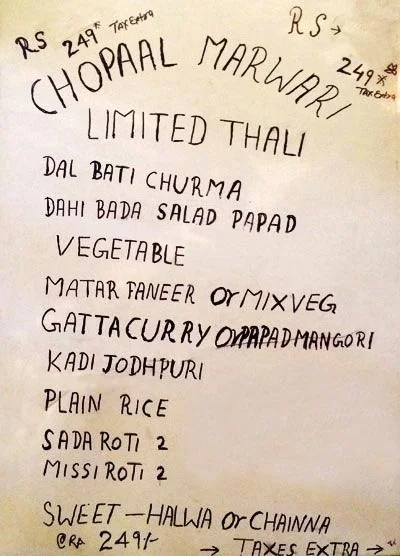 RS 249* Tax Extra
RS→ 249* Tax Extra
CHOPAAL MARWARI
LIMITED THALI
DAL BATI CHURMA
DAHI BADA SALAD PAPAD
VEGETABLE
MATAR PANEER Or MIXVEG
GATTACURRY Or PAPADMANGORI
KADI JODHPURI
PLAIN RICE
SADA ROTI 2
MISSI ROTI 2
SWEET — HALWA Or CHAINNA
@RA 249/- → TAXES EXTRA →